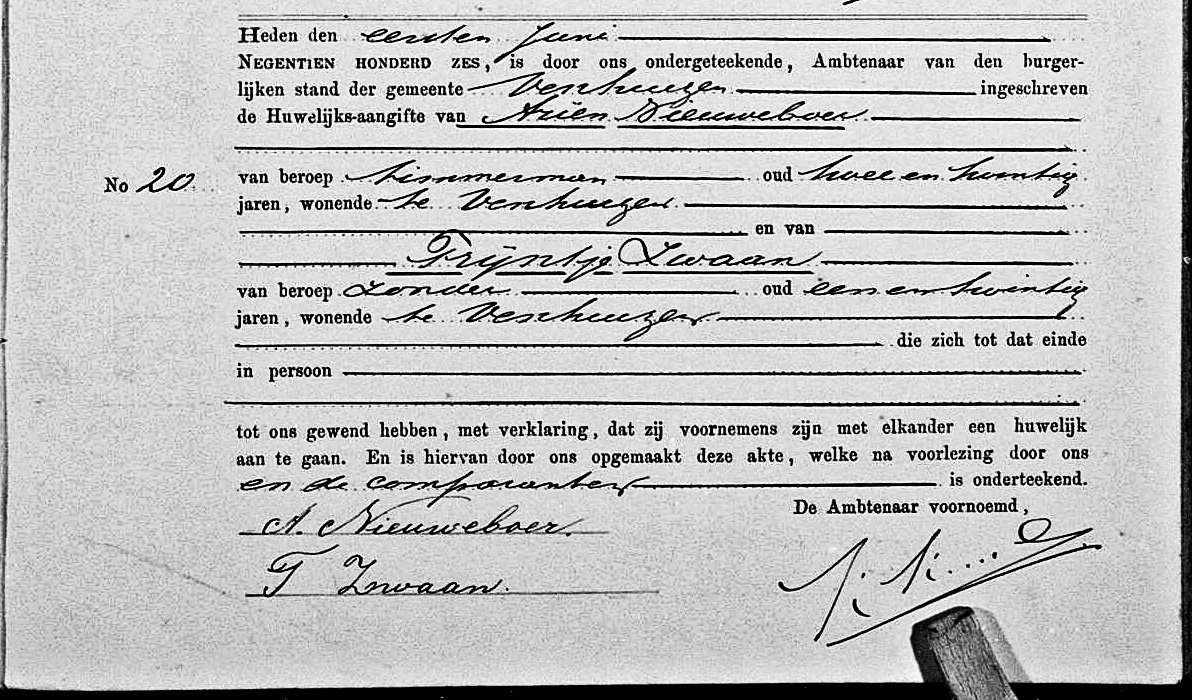 Heden den eersten Juni
NEGENTIEN HONDERD ZES, is door ons ondergeteekende, Ambtenaar van den burger-
lijken stand der gemeente Venhuizen ingeschreven
de Huwelijks-aangifte van Arien Nieuweboer
No 20 van beroep timmerman oud twee en twintig
jaren, wonende te Venhuizen
en van
Trijntje Zwaan
van beroep zonder oud een en twintig
jaren, wonende te Venhuizen
die zich tot dat einde
in persoon
tot ons gewend hebben, met verklaring, dat zij voornemens zijn met elkander een huwelijk
aan te gaan. En is hiervan door ons opgemaakt deze akte, welke na voorlezing door ons
en de comparanten is onderteekend.
De Ambtenaar voornoemd,
A. Nieuweboer.
T Zwaan.